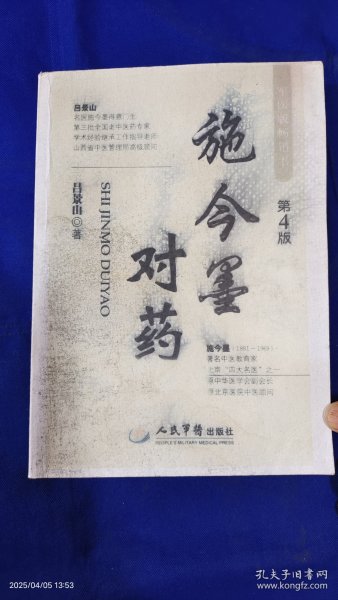 吕景山
名医施今墨得意门生
第三批全国老中医药专家
学术经验继承工作指导老师
山西省中医管理局高级顾问
施今墨
对药
第4版
吕景山◎著
SHI JINMO DUIYAO
施今墨(1881-1969)
著名中医教育家
北京“四大名医”之一
原中华医学会副会长
原北京医院中医顾问
人民军医出版社
PEOPLE'S MILITARY MEDICAL PRESS
2025/04/05 13:53
孔夫子旧书网